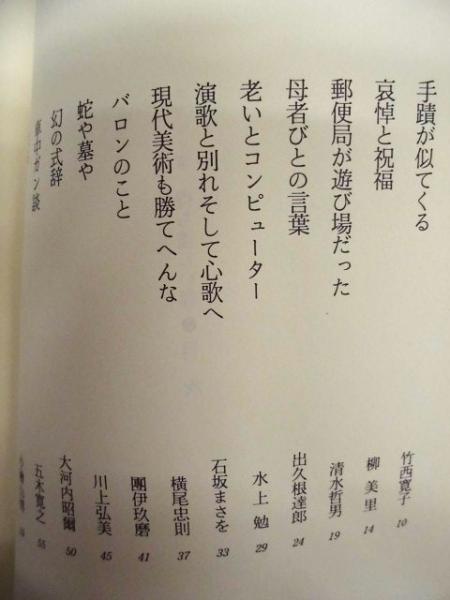 手蹟が似てくる 竹西寛子 10
哀悼と祝福 柳 美里 14
郵便局が遊び場だった 清水哲男 19
母者びとの言葉 出久根達郎 24
老いとコンピューター 水上 勉 29
演歌と別れそして心歌へ 石坂まさを 33
現代美術も勝てへんな 横尾忠則 37
バロンのこと 團伊玖磨 41
蛇や墓や 川上弘美 45
幻の式辞 大河内昭爾 50
車中ガン談 五木寛之 55